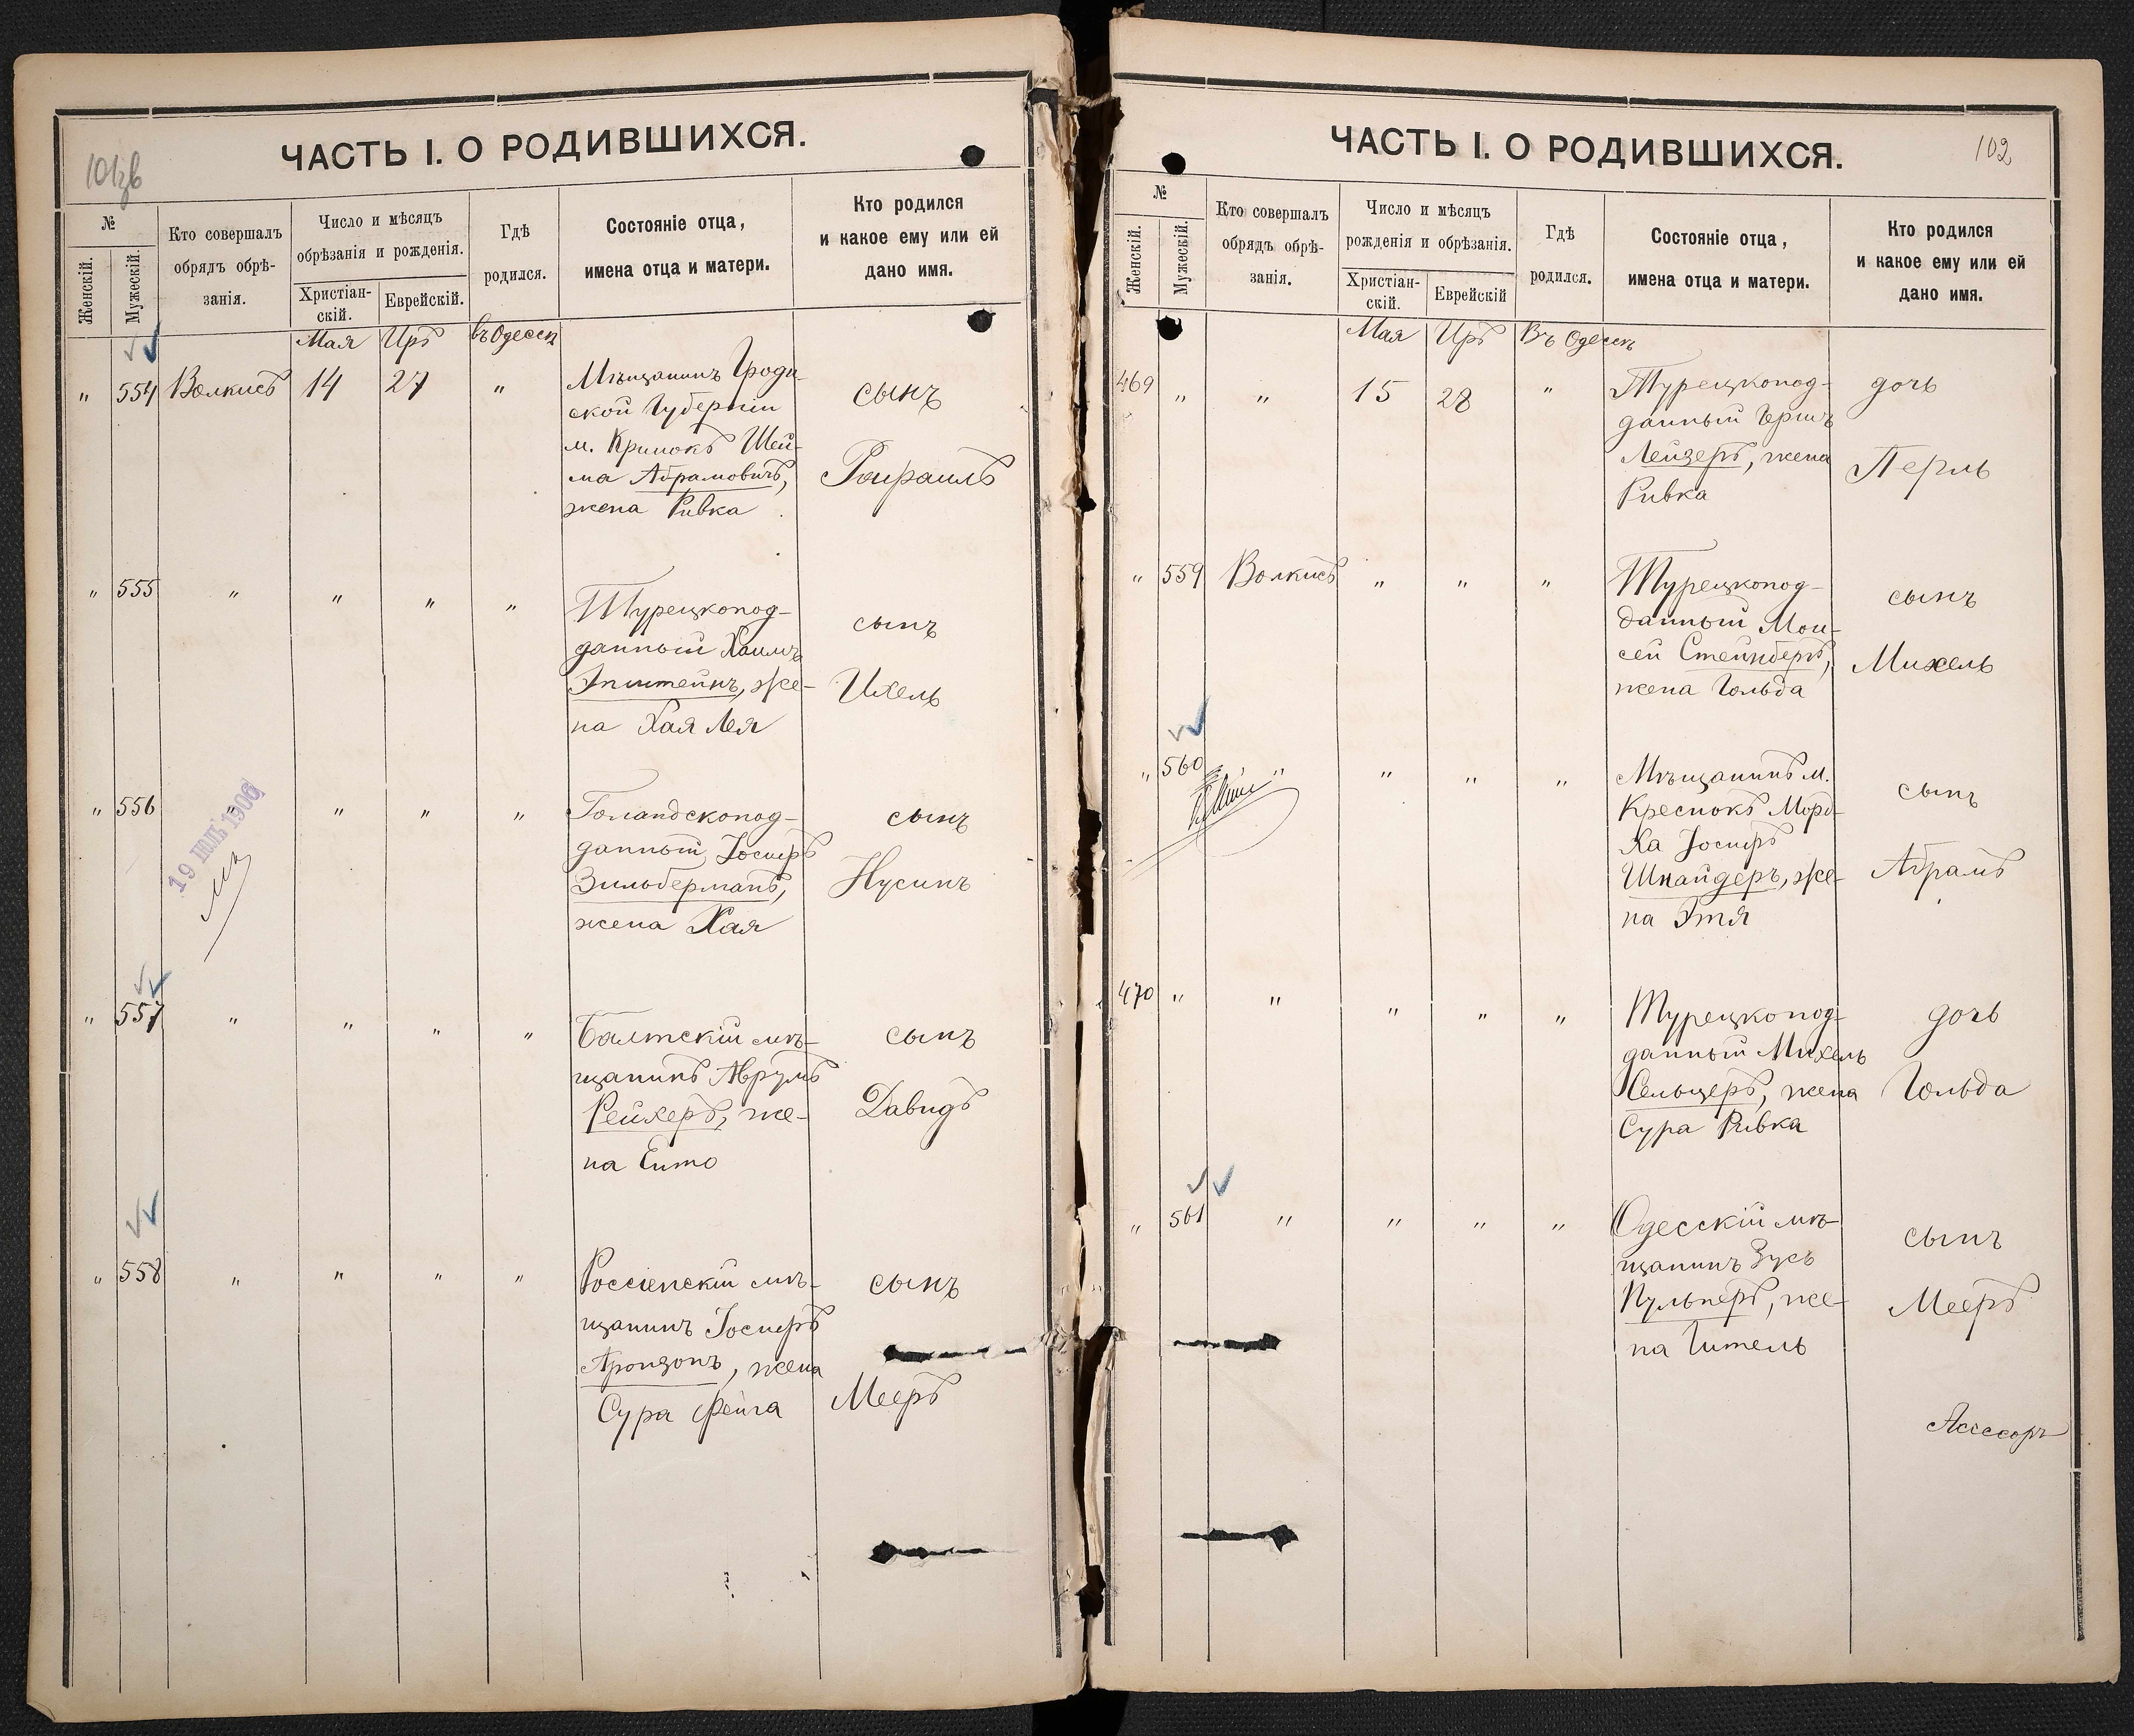 101об
ЧАСТЬ I. О РОДИВШИХСЯ.
№
Женскій.
Мужескій.
Кто совершалъ
обрядъ обрѣ-
занія.
Число и мѣсяцъ
обрѣзанія и рожденія.
Христіан-
скій.
Еврейскій.
Гдѣ
родился.
Состояніе отца,
имена отца и матери.
Кто родился
и какое ему или ей
дано имя.
Мая Иръ въ Одессѣ
" 554 Волкисъ 14 27 "
Мѣщанинъ Гродн-
ской Губерніи
м. Кринокъ Шей-
ма Абрамовичъ,
жена Ривка
сынъ
" 555 " " " "
Турецкопод-
данный Хаимъ
Эпштейнъ, же-
на Хая Лея
сынъ
Ихель
" 556 " " " "
19 ІЮЛ 1906
Голандскопод-
данный Іосифъ
Зильберманъ,
жена Хая
сынъ
Нусинъ
" 557 " " " "
Балтскій мѣ-
щанинъ Аврумъ
Рейхеръ, же-
на Ента
сынъ
Давидъ
" 558 " " " "
Россіенскій мѣ-
щанинъ Іосифъ
Аронзонъ, жена
Сура Фейга
сынъ
Мееръ
102
ЧАСТЬ I. О РОДИВШИХСЯ.
№
Женскій.
Мужескій.
Кто совершалъ
обрядъ обрѣ-
занія.
Число и мѣсяцъ
рожденія и обрѣзанія.
Христіан-
скій.
Еврейскій
Гдѣ
родился.
Состояніе отца,
имена отца и матери.
Кто родился
и какое ему или ей
дано имя.
Мая Иръ Въ Одессѣ
469 " " 15 28 "
Турецкопод-
данный Герш
Лейзеръ, жена
Ривка
дочь
Перль
" 559 Волкисъ " " "
Турецкопод-
данный Мои-
сей Стейнбергъ,
жена Гольда
сынъ
Михель
" 560 " " " "
Мѣщанинъ м.
Креснокъ Морд-
ха Іосифъ
Шнайдеръ, же-
на Этя
сынъ
Абрамъ
470 " " " " "
Турецкопод-
данный Михель
Сельцеръ, жена
Сура Ривка
дочь
Гольда
" 561 " " " "
Одесскій мѣ-
щанинъ Зусь
Пульнеръ, же-
на Гитель
сынъ
Мееръ
Асессоръ